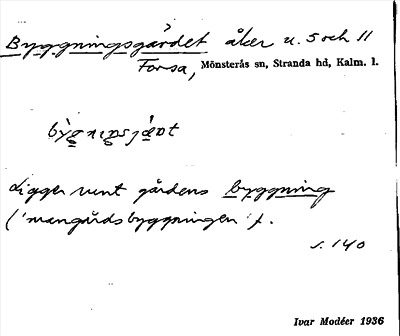 Byggningsgärdet åker u. 5 och 11
Forsa, Mönsterås sn, Stranda hd, Kalm. l.
Ligger runt gårdens byggning
('mangårdsbyggningen').
s. 140
Ivar Modéer 1936